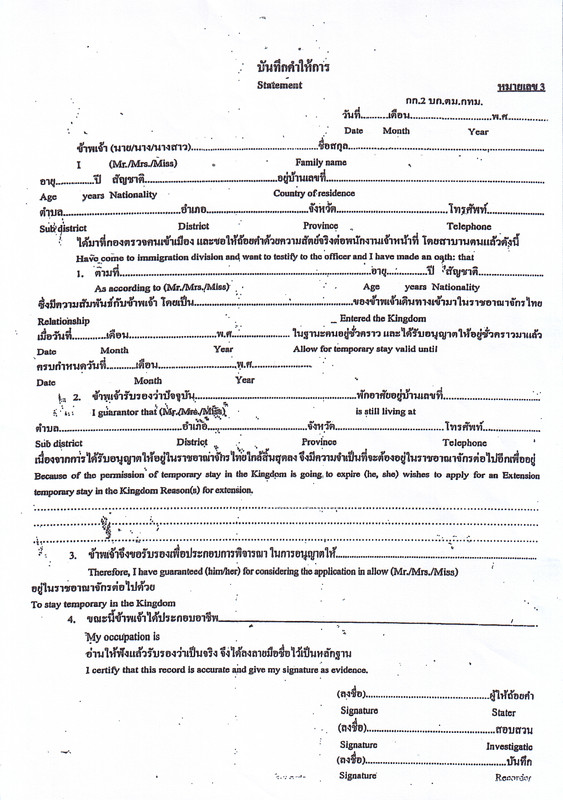 บันทึกคำให้การ
Statement
หมายเลข 3
กก.2 บก.ตม.กทม.
วันที่..........เดือน........................พ.ศ..............
Date Month Year
ข้าพเจ้า (นาย/นาง/นางสาว)..................................ชื่อสกุล..................................
I (Mr./Mrs./Miss) Family name
อายุ.............ปี สัญชาติ..................................อยู่บ้านเลขที่..................................
Age years Nationality Country of residence
ตำบล..................................อำเภอ..........................จังหวัด..........................โทรศัพท์......................
Sub district District Province Telephone
ได้มาที่กองตรวจคนเข้าเมือง และขอให้ถ้อยคำด้วยความสัตย์จริงต่อพนักงานเจ้าหน้าที่ โดยสาบานตนแล้วดังนี้
Have come to immigration division and want to testify to the officer and I have made an oath: that
1. ตามที่..................................................อายุ..........ปี สัญชาติ......................
As according to (Mr./Mrs./Miss) Age years Nationality
ซึ่งมีความสัมพันธ์กับข้าพเจ้า โดยเป็น..................................ของข้าพเจ้าเดินทางเข้ามาในราชอาณาจักรไทย
Relationship Entered the Kingdom
เมื่อวันที่..........เดือน........................พ.ศ.................. ในฐานะคนอยู่ชั่วคราว และได้รับอนุญาตให้อยู่ชั่วคราวมาแล้ว
Date Month Year Allow for temporary stay valid until
ครบกำหนดวันที่..........เดือน......................พ.ศ....................
Date Month Year
2. ข้าพเจ้ารับรองว่าปัจจุบัน..................................พักอาศัยอยู่บ้านเลขที่......................
I guarantor that (Mr./Mrs./Miss) is still living at
ตำบล..................................อำเภอ..........................จังหวัด..........................โทรศัพท์......................
Sub district District Province Telephone
เนื่องจากการได้รับอนุญาตให้อยู่ในราชอาณาจักรไทยใกล้สิ้นสุดลง จึงมีความจำเป็นที่จะต้องอยู่ในราชอาณาจักรต่อไปอีกเพื่ออยู่
Because of the permission of temporary stay in the Kingdom is going to expire (he, she) wishes to apply for an Extension
temporary stay in the Kingdom Reason(s) for extension.
3. ข้าพเจ้าจึงขอรับรองเพื่อประกอบการพิจารณา ในการอนุญาตให้..................................
Therefore, I have guaranteed (him/her) for considering the application in allow (Mr./Mrs./Miss)
อยู่ในราชอาณาจักรต่อไปด้วย
To stay temporary in the Kingdom
4. ขณะนี้ข้าพเจ้าได้ประกอบอาชีพ..................................
My occupation is
อ่านให้ฟังแล้วรับรองว่าเป็นจริง จึงได้ลงลายมือชื่อไว้เป็นหลักฐาน
I certify that this record is accurate and give my signature as evidence.
(ลงชื่อ)..................................ผู้ให้ถ้อยคำ
Signature Stater
(ลงชื่อ)..................................สอบสวน
Signature Investigatic
(ลงชื่อ)..................................บันทึก
Signature Recorder